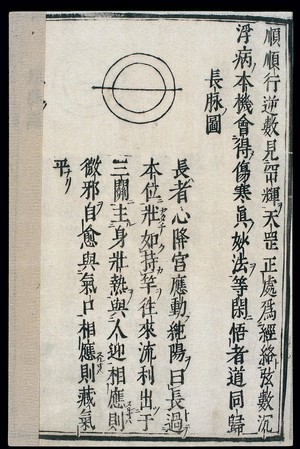 順順行逆數見罡輝天罡正處爲經絡弦數沉
浮病本機會得傷寒眞妙法等閑悟者道同歸
長脉圖
長者心降宮應動純陽ヲ曰長過
本位壯如持竿往來流利出于
三關主身壯熱與人迎相應則
微邪自愈與氣口相應則藏氣
平ナリ